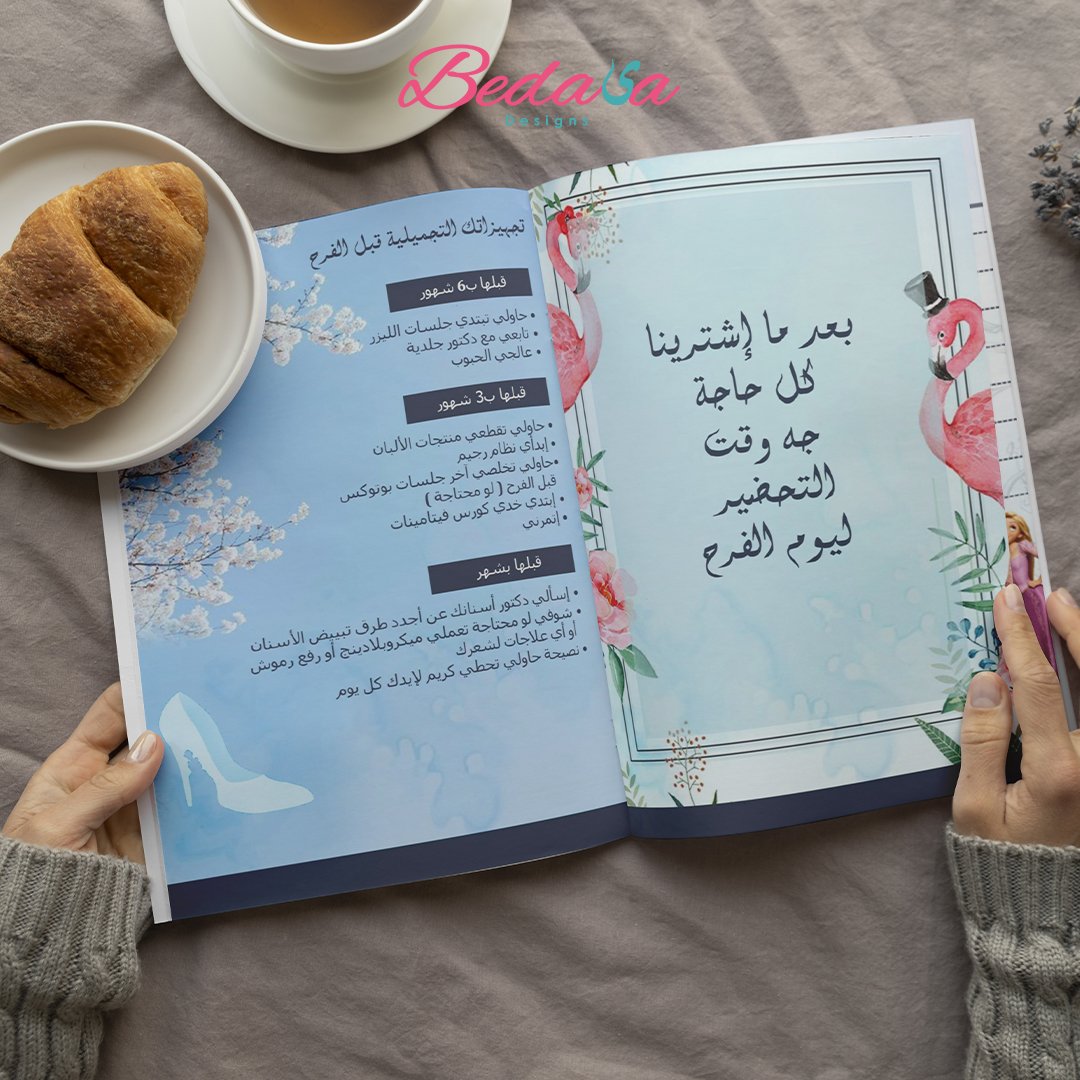 Bedaya
Designs
بعد ما إشترينا
كل حاجة
جه وقت
التحضير
ليوم الفرح
تجهيزاتك التجميلية قبل الفرح
قبلها ب6 شهور
• حاولي تبتدي جلسات الليزر
• تابعي مع دكتور جلدية
• عالجي الحبوب
قبلها ب3 شهور
• حاولي تقطعي منتجات الألبان
• إبدأي نظام رجيم
• حاولي تخلصي آخر جلسات بوتوكس
قبل الفرح ( لو محتاجة )
• إبتدي خدي كورس فيتامينات
• إتمرني
قبلها بشهر
• إسألي دكتور أسنانك عن أجدد طرق تبييض الأسنان
• شوفي لو محتاجة تعملي ميكروبلادينج أو رفع رموش
أو أي علاجات لشعرك
• نصيحة حاولي تحطي كريم لإيدك كل يوم